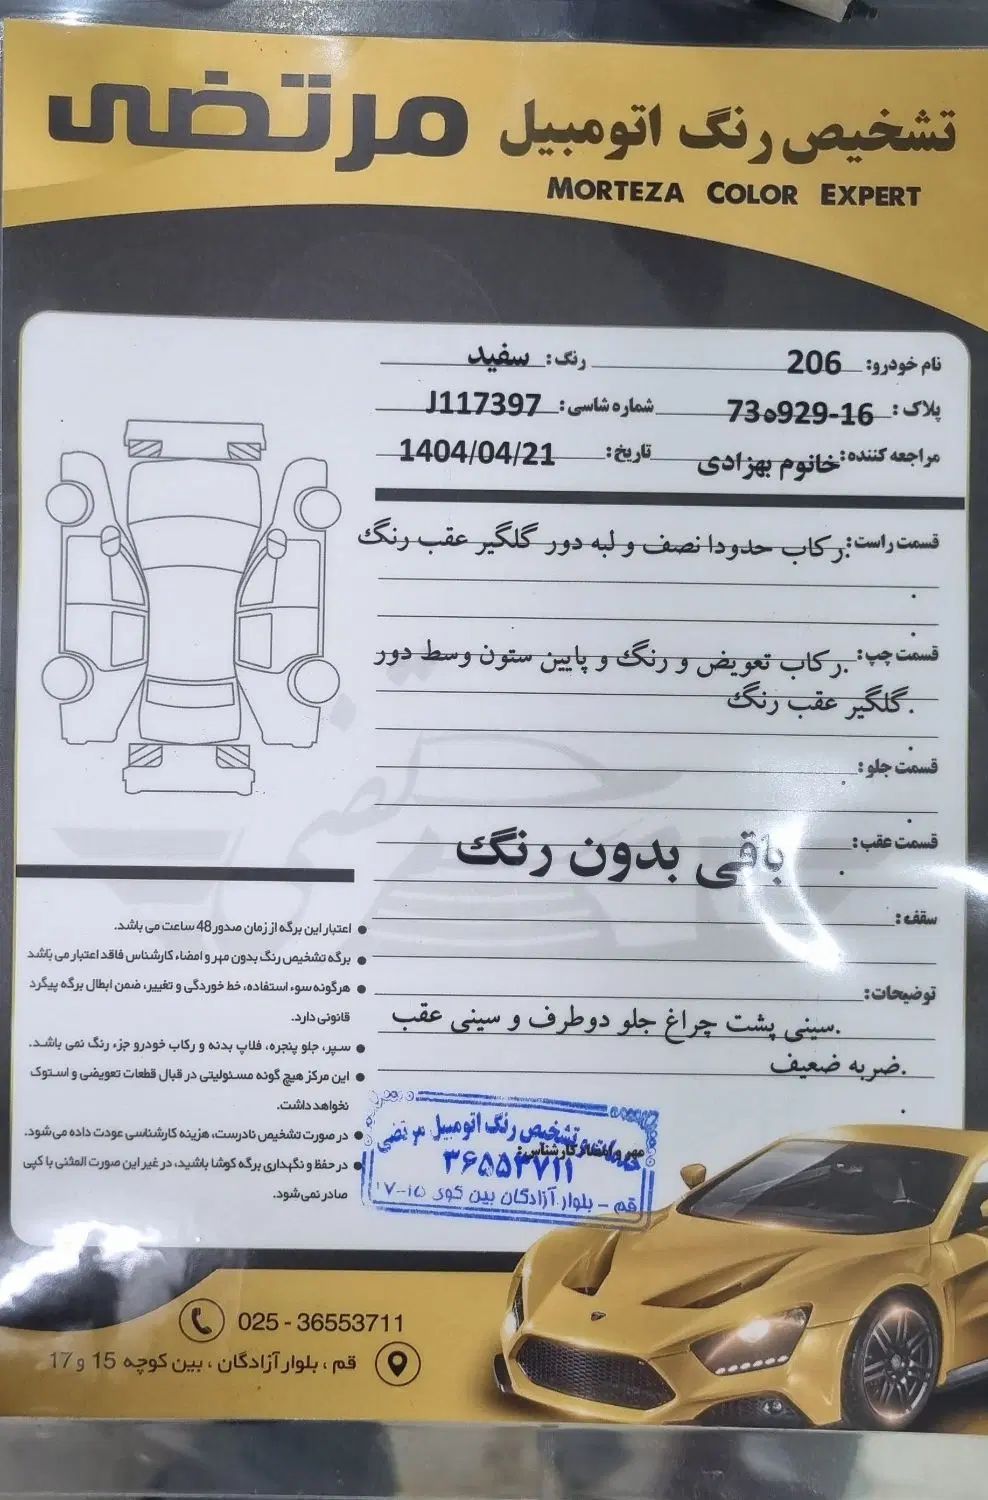 تشخیص رنگ اتومبیل مرتضی
MORTEZA COLOR EXPERT
نام خودرو: 206 رنگ: سفید
پلاک: 16-929ه73 شماره شاسی: J117397
مراجعه کننده: خانوم بهزادی تاریخ: 1404/04/21
قسمت راست: .رکاب حدودا نصف و لبه دور گلگیر عقب رنگ
.
.
قسمت چپ: .رکاب تعویض و رنگ و پایین ستون وسط دور
.گلگیر عقب رنگ
.
قسمت جلو: .
.
قسمت عقب: .
باقی بدون رنگ
سقف:
توضیحات:
.سینی پشت چراغ جلو دوطرف و سینی عقب
.ضربه ضعیف
.
مهر و امضاء کارشناس:
تشخیص رنگ اتومبیل مرتضی
۳۶۵۵۳۷۱۱
قم - بلوار آزادگان بین کوی ۱۵-۱۷
● اعتبار این برگه از زمان صدور 48 ساعت می باشد.
● برگه تشخیص رنگ بدون مهر و امضاء کارشناس فاقد اعتبار می باشد
● هرگونه سوء استفاده، خط خوردگی و تغییر، ضمن ابطال برگه پیگرد
قانونی دارد.
● سپر، جلو پنجره، فلاپ بدنه و رکاب خودرو جزء رنگ نمی باشد.
● این مرکز هیچ گونه مسئولیتی در قبال قطعات تعویضی و استوک
نخواهد داشت.
● در صورت تشخیص نادرست، هزینه کارشناسی عودت داده می شود.
● در حفظ و نگهداری برگه کوشا باشید، در غیر این صورت المثنی با کپی
صادر نمی شود.
025 - 36553711
قم ، بلوار آزادگان ، بین کوچه 15 و 17